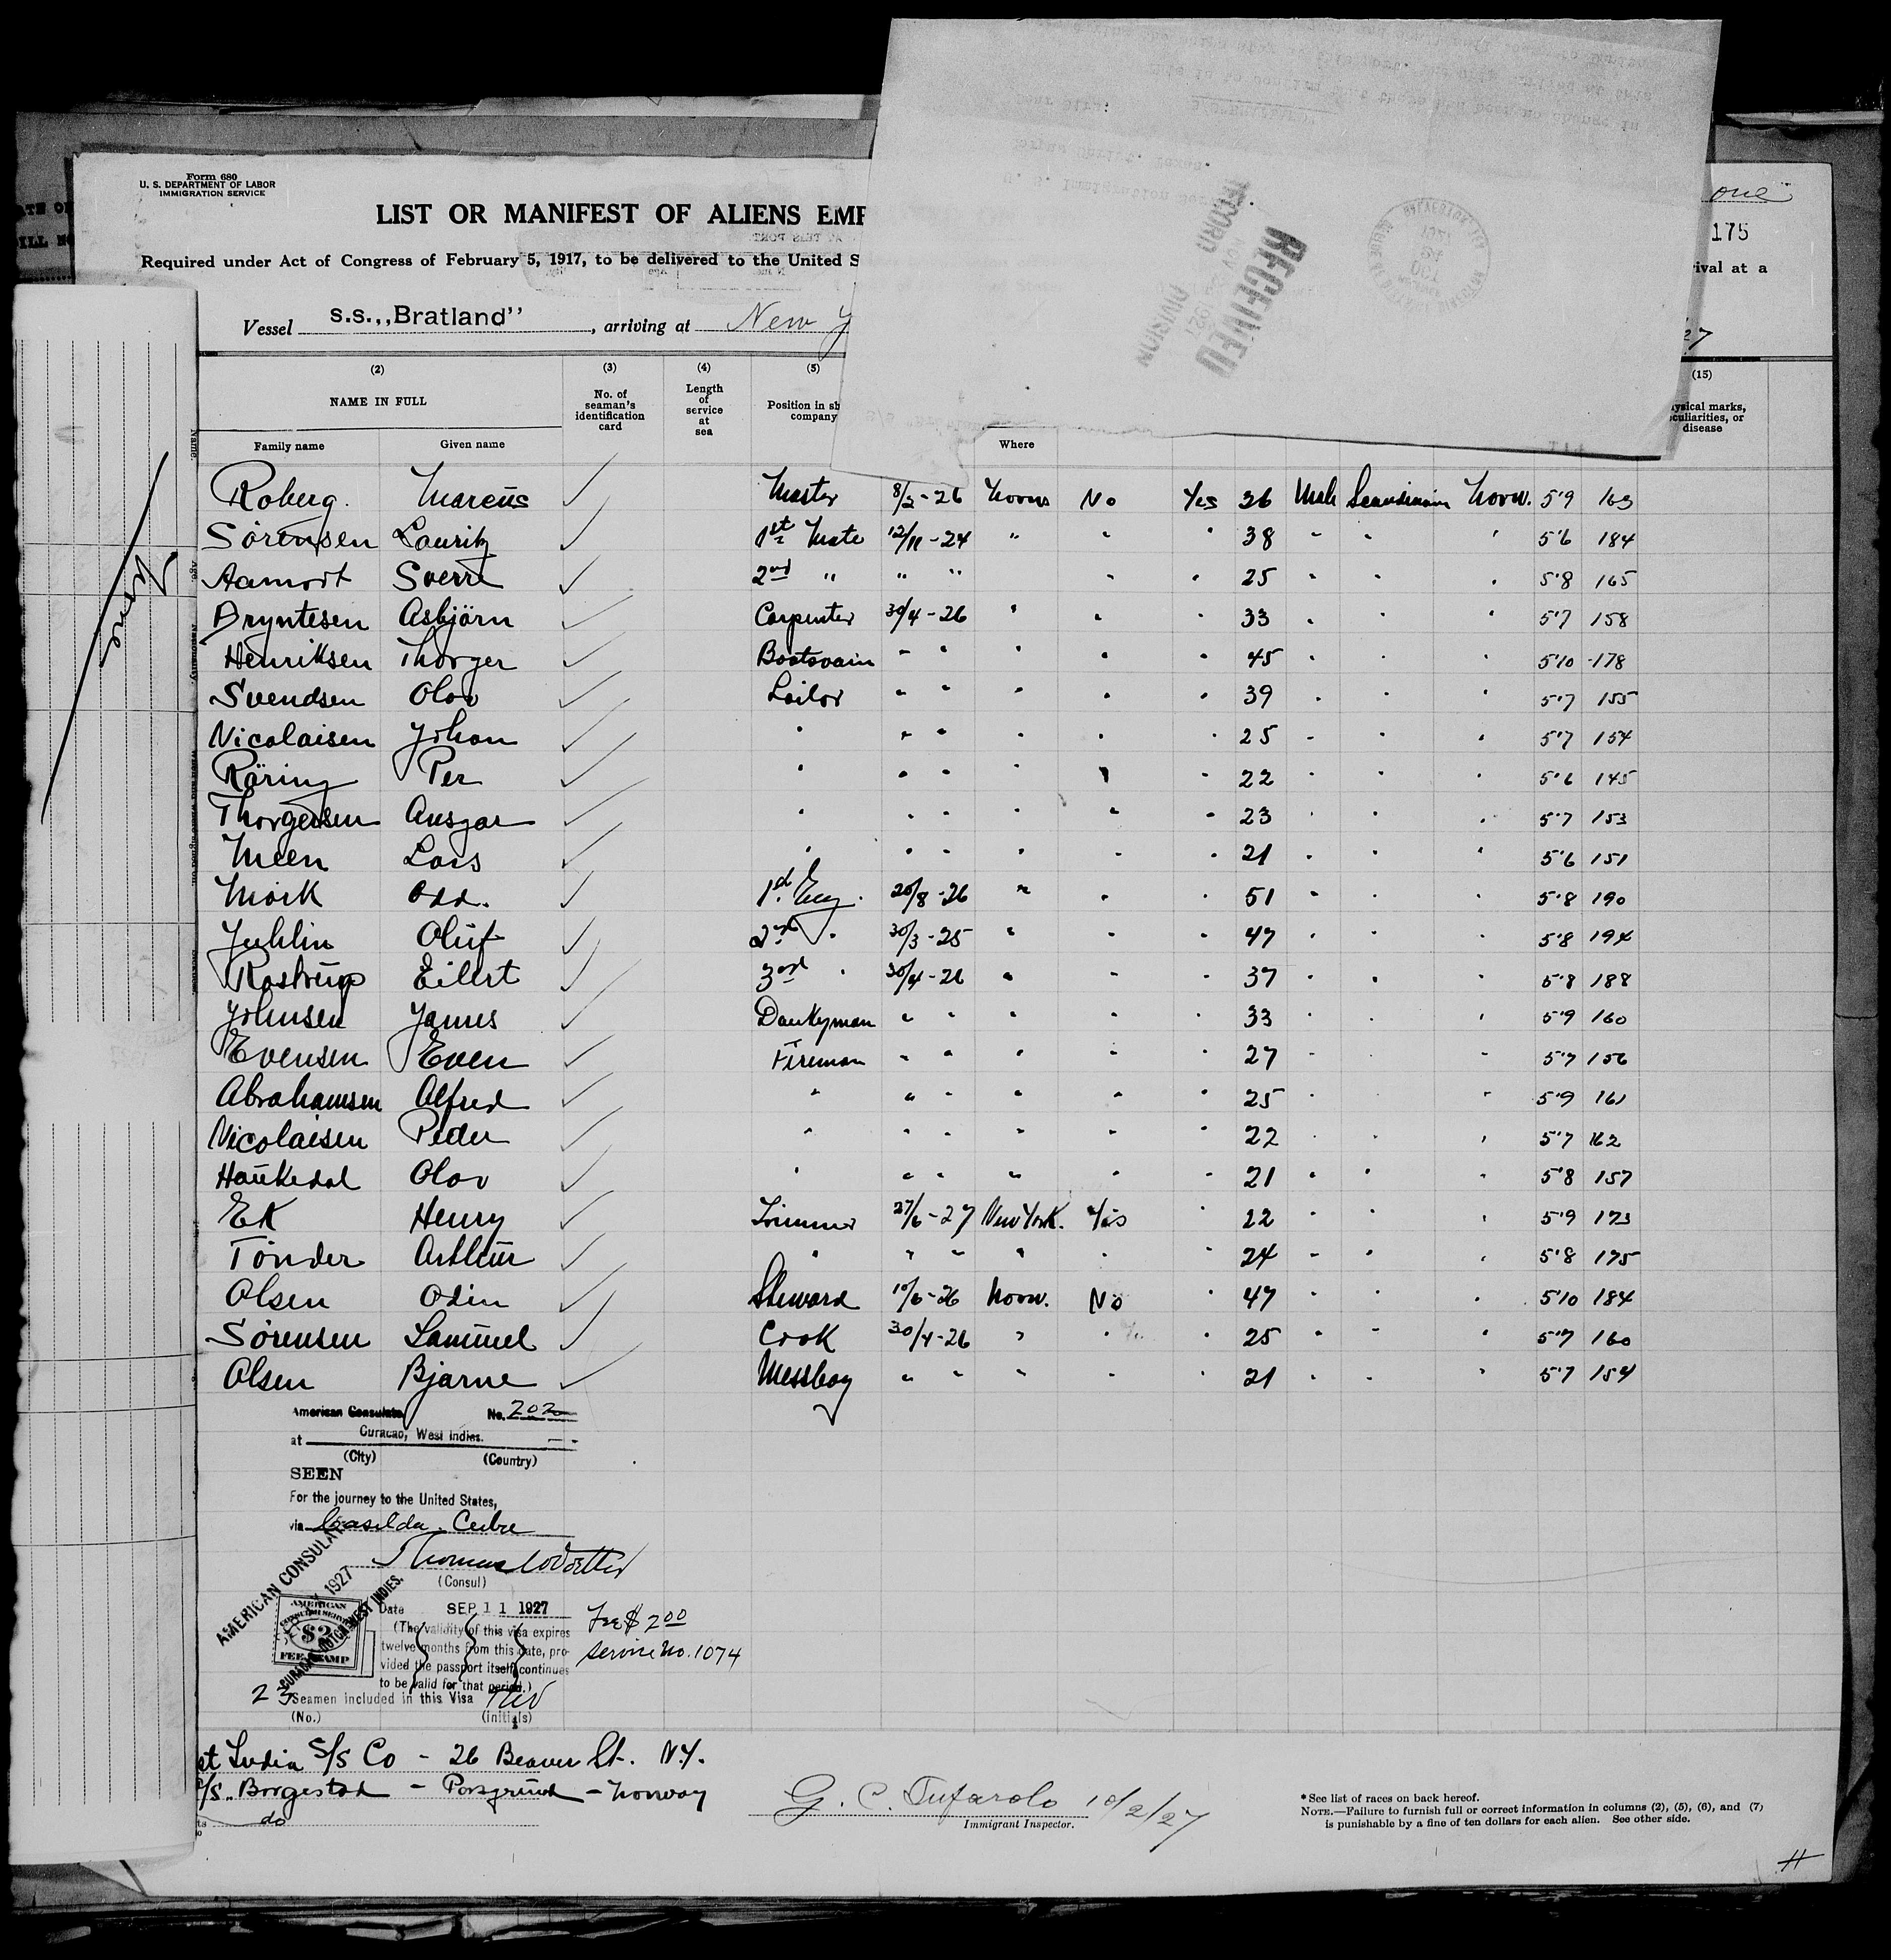 Form 680
U. S. DEPARTMENT OF LABOR
IMMIGRATION SERVICE
LIST OR MANIFEST OF ALIENS EMP
Required under Act of Congress of February 5, 1917, to be delivered to the United S
ival at a
175
Vessel s.s.,,Bratland'' , arriving at New Y
RECEIVED
RECORD DIVISION
(2) (3) (4) (5) (15)
NAME IN FULL No. of seaman's identification card Length of service at sea Position in sh company Where ysical marks, culiarities, or disease
Family name Given name
Roberg. Marcus Master 8/2-26 No Yes 36 Male Norw. 5'9 163
Sörensen Lauritz 1st Mate 12/11-24 " 38 5'6 184
Aamodt Sverre 2nd " " " 25 5'8 165
Bryntesen Asbjörn Carpenter 30/4-26 33 5'7 158
Henriksen Thorger Boatsvain 45 5'10 178
Svendsen Olav Sailor 39 5'7 155
Nicolaisen Johan 25 5'7 154
Röring Per 22 5'6 145
Thorgersen Ansgar 23 5'7 153
Meen Lars 21 5'6 151
Mörk Odd. 1st Eng. 20/8-26 " 51 5'8 190
Juhlin Oluf 2nd 30/3-25 47 5'8 194
Rostrup Eilert 3rd 30/4-26 37 5'8 188
Johnsen James Donkyman 33 5'9 160
Evensen Even Fireman 27 5'7 156
Abrahamsen Alfred 25 5'9 161
Nicolaisen Peder 22 5'7 162
Haukedal Olav 21 5'8 157
Ek Henry Trimmer 27/6-27 New York. Yes 22 5'9 173
Tönder Arthur 24 5'8 175
Olsen Odin Steward 10/6-26 Norw. No 47 5'10 184
Sørensen Samuel Cook 30/4-26 25 5'7 160
Olsen Bjarne Messboy 21 5'7 154
American Consulate No. 202
at Curacao, West Indies.
(City) (Country)
SEEN
For the journey to the United States,
via Casilda, Cuba
(Consul)
AMERICAN CONSULATE
1927
AMERICAN
$2
FEE STAMP
Date SEP 11 1927
(The validity of this visa expires
twelve months from this date, pro-
vided the passport itself continues
to be valid for that period.)
Fee $2.00
Service No. 1074
23 Seamen included in this Visa
(No.) (Initials)
st India S/S Co - 26 Beaver St. N.Y.
/S. Borgestad - Porsgrund - Norway
do
G. C. Tufarolo 10/2/27
Immigrant Inspector.
*See list of races on back hereof.
NOTE.—Failure to furnish full or correct information in columns (2), (5), (6), and (7)
is punishable by a fine of ten dollars for each alien. See other side.